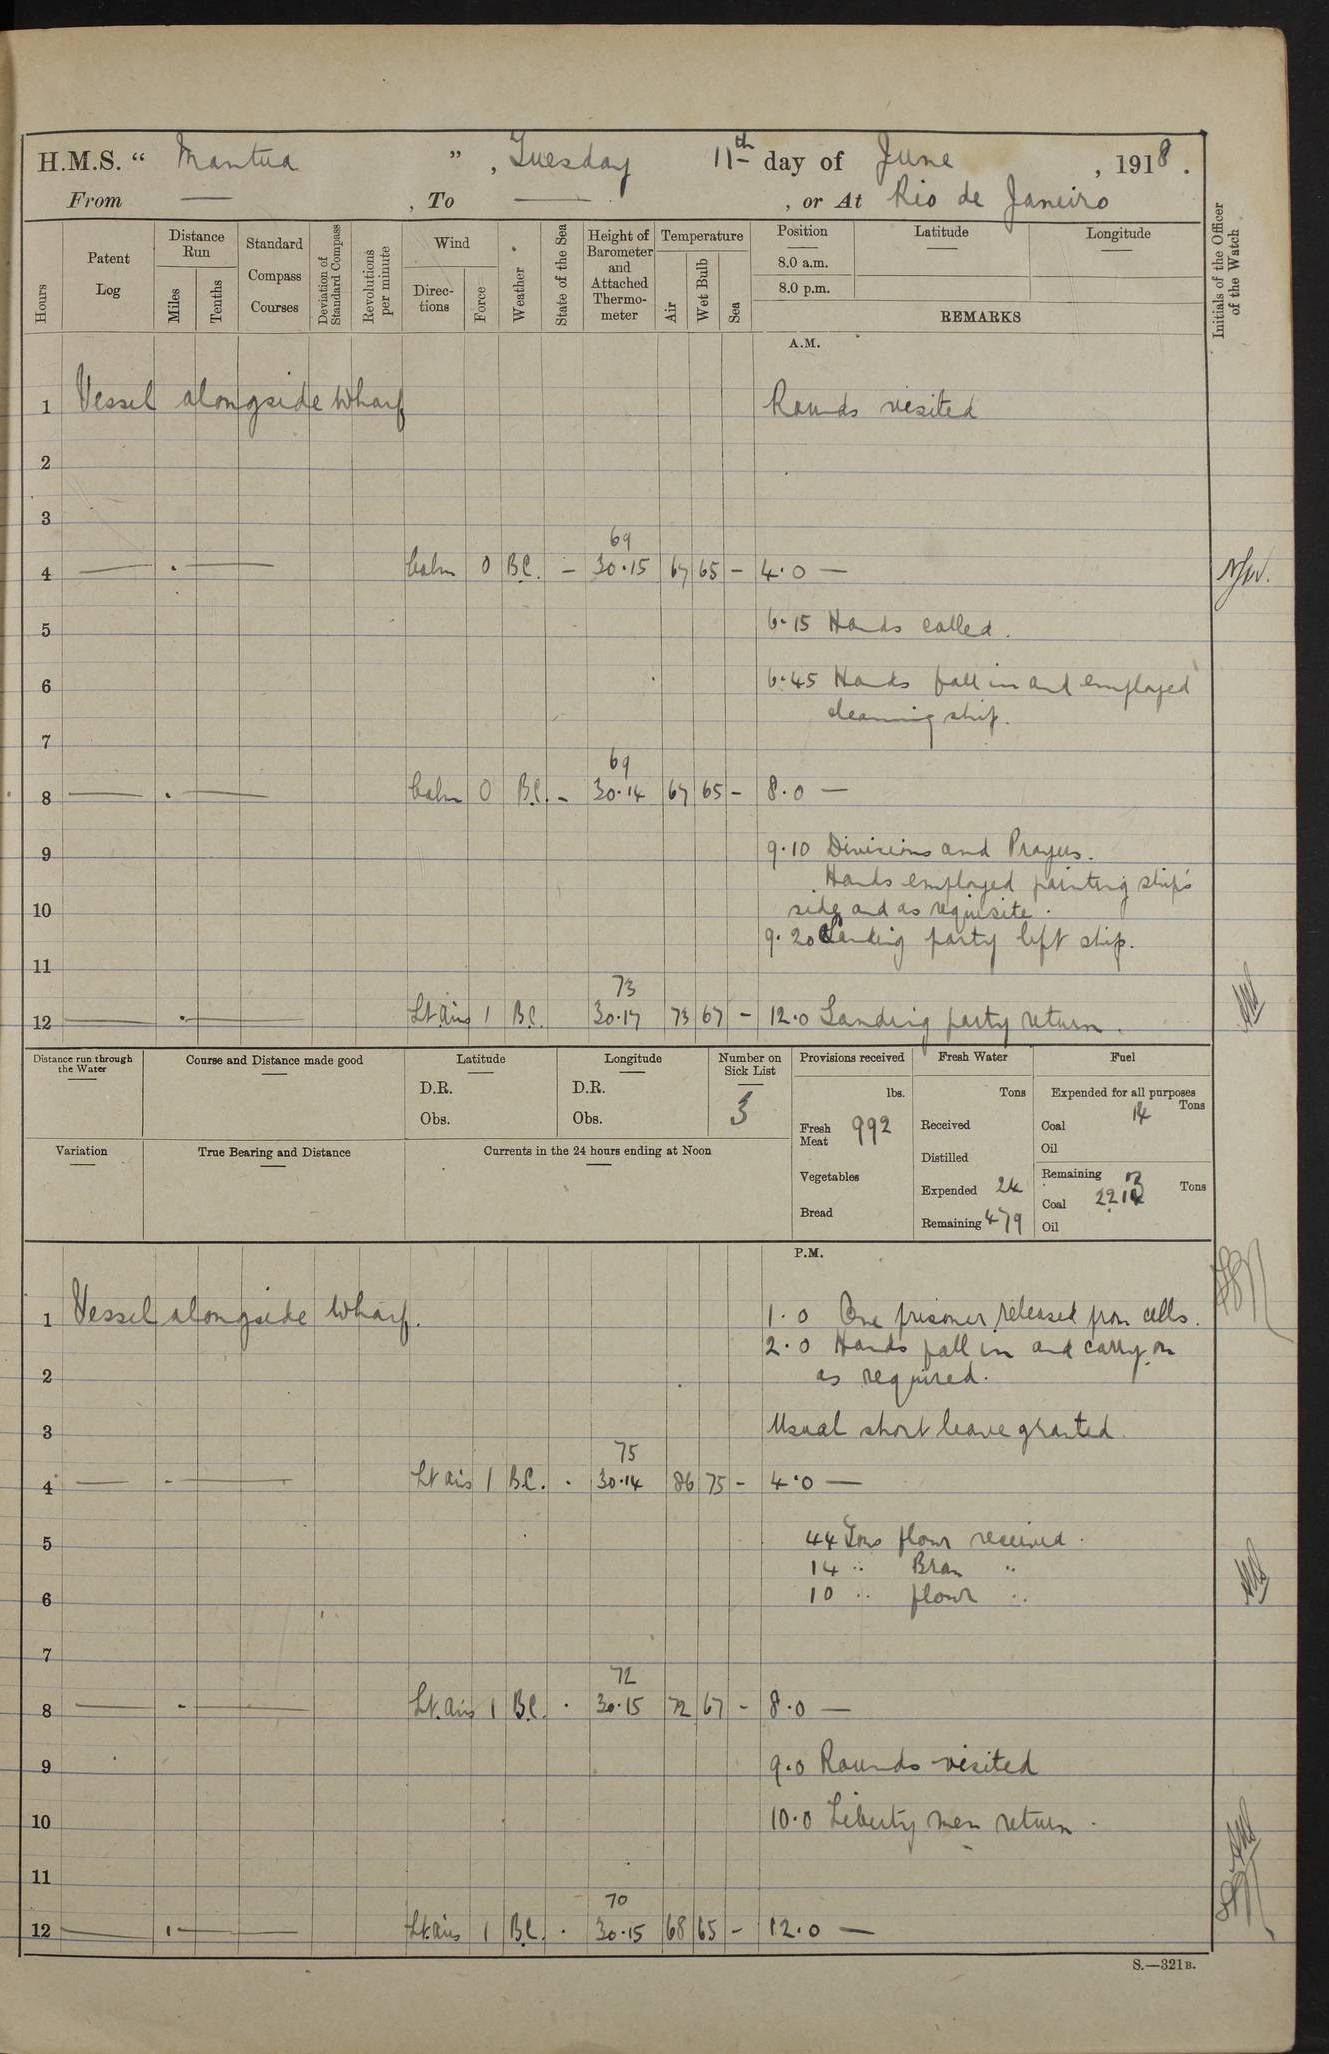 H.M.S. “ Mantua ” , Tuesday 11th day of June , 1918 .
From — , To — , or At Rio de Janeiro
Hours
Patent Log
Distance Run
Miles
Tenths
Standard Compass Courses
Deviation of Standard Compass
Revolutions per minute
Wind
Direc-tions
Force
Weather
State of the Sea
Height of Barometer and Attached Thermo-meter
Temperature
Air
Wet Bulb
Sea
Position
8.0 a.m.
8.0 p.m.
Latitude
Longitude
REMARKS
Initials of the Officer of the Watch
A.M.
1 Vessel alongside Wharf Rounds visited
2
3
69
4 — . — Calm 0 B.C. — 30.15 67 65 – 4.0 —
5 6.15 Hands called.
6 6.45 Hands fall in and employed
cleaning ship.
7
69
8 — . — Calm 0 B.C. – 30.14 67 65 – 8.0 —
9 9.10 Divisions and Prayers.
Hands employed painting ship's
10 side and as requisite.
9.20 Landing party left ship.
11
73
12 — . — Lt airs 1 B.C. 30.17 73 67 – 12.0 Landing party return.
Distance run through the Water
Course and Distance made good
Latitude
D.R.
Obs.
Longitude
D.R.
Obs.
Number on Sick List
3
Provisions received
lbs.
Fresh Meat 992
Vegetables
Bread
Fresh Water
Tons
Received
Distilled
Expended 24
Remaining 479
Fuel
Expended for all purposes
Tons
Coal 14
Oil
Remaining
Tons
Coal
Oil
Variation
True Bearing and Distance
Currents in the 24 hours ending at Noon
P.M.
1 Vessel alongside Wharf. 1.0 One prisoner released from cells.
2.0 Hands fall in and carry on
2 as required.
3 Usual short leave granted.
75
4 — - — Lt airs 1 B.C. . 30.14 86 75 – 4.0 —
5 44 Tons flour received.
14 " Bran "
6 10 " flour "
7
72
8 — - — Lt. airs 1 B.C. . 30.15 72 67 – 8.0 —
9 9.0 Rounds visited
10 10.0 Liberty men return.
11
70
12 — . — Lt. airs 1 B.C. . 30.15 68 65 – 12.0 —
S.—321B.